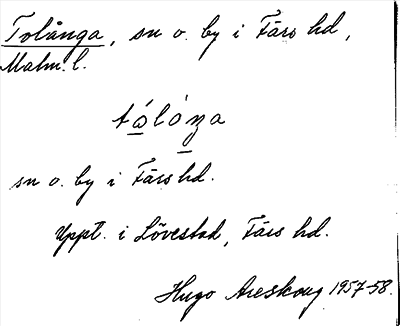 Tolånga, sn o. by i Färs hd,
Malm. l.
tώ̲lóŋa
sn o. by i Färs hd.
Uppt. i Lövestad, Färs hd.
Hugo Areskoug 1957-58.